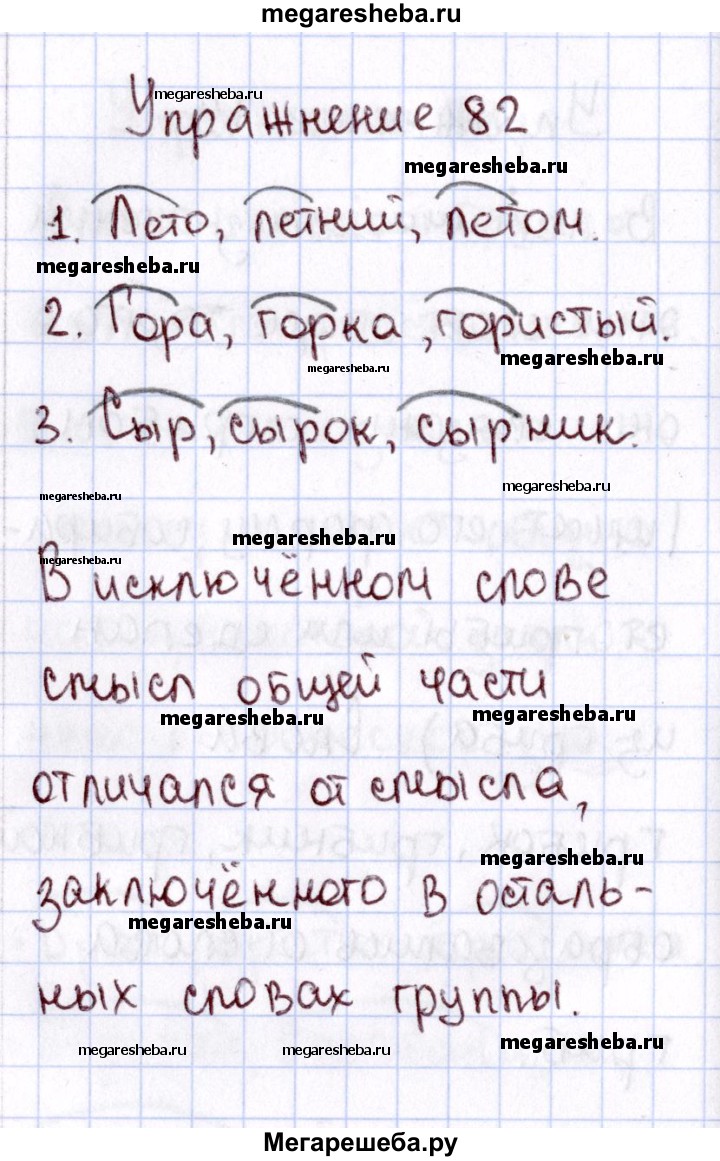 megaresheba.ru
megaresheba.ru
Упражнение 82
megaresheba.ru
1. Лето, летний, летом.
megaresheba.ru
2. Гора, горка, гористый.
megaresheba.ru
megaresheba.ru
3. Сыр, сырок, сырник.
megaresheba.ru
megaresheba.ru
megaresheba.ru
megaresheba.ru
В исключённом слове
смысл общей части
megaresheba.ru
megaresheba.ru
отличался от смысла,
megaresheba.ru
заключённого в осталь-
megaresheba.ru
ных словах группы.
megaresheba.ru
megaresheba.ru
megaresheba.ru
Мегарешеба.ру